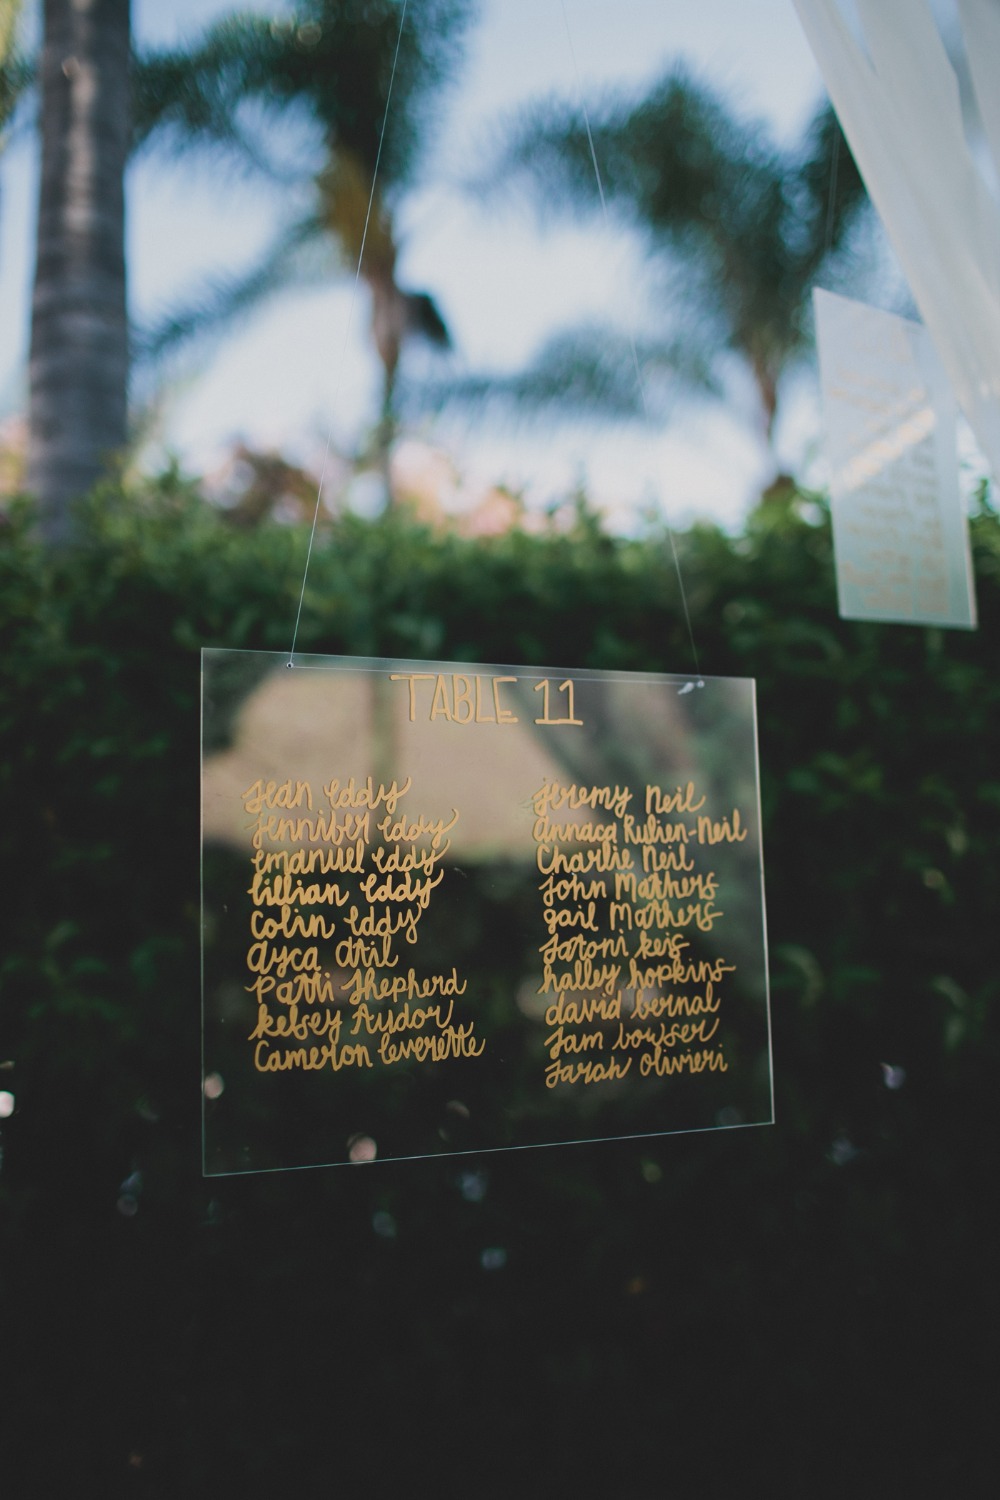 TABLE 11
Sean Eddy
Jennifer Eddy
Emanuel Eddy
Lillian Eddy
Colin Eddy
Ayca Atil
Patti Shepherd
Kelsey Tudor
Cameron Leverette
Jeremy Neil
Annaca Rubien-Neil
Charlie Neil
John Mathers
Gail Mathers
Satoni Keis
halley hopkins
david bernal
Sam bowser
Sarah Olivieri